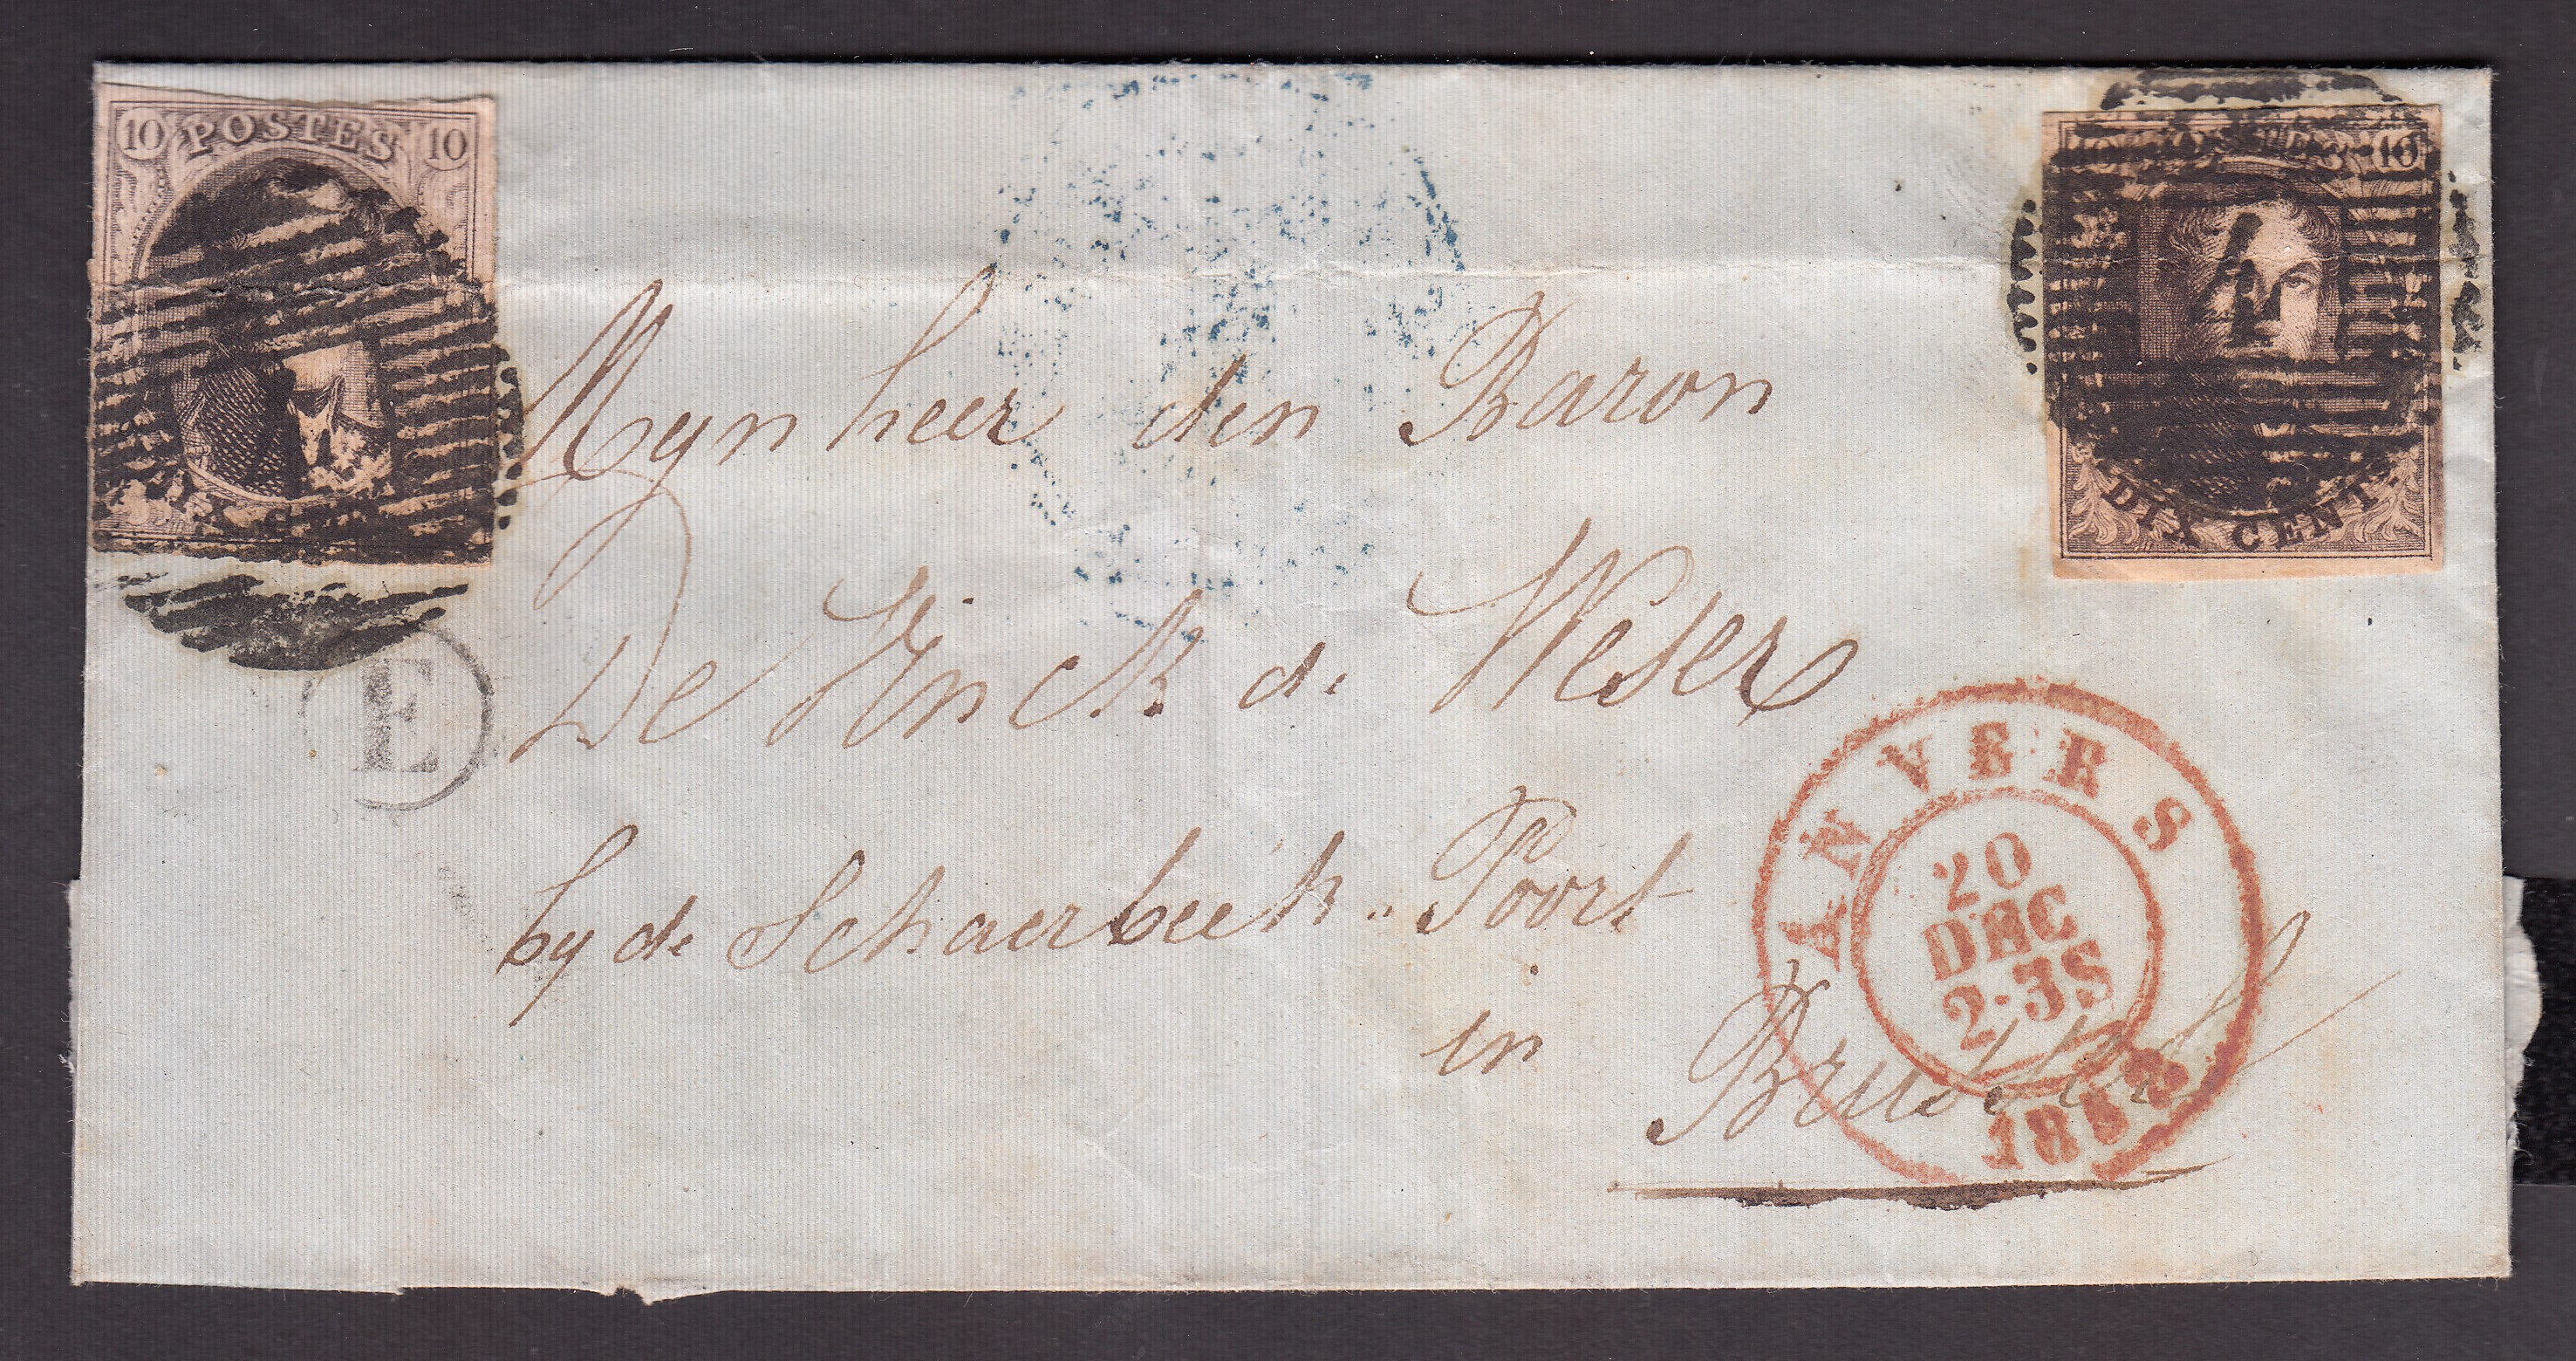 10 POSTES 10
10 POSTES 10
4
DIX CENT
Mynheer den Baron
De Vinck de Weser
E
by de Schaerbeek-Poort
in Brussel
ANVERS
20
DEC
2-3S
1852